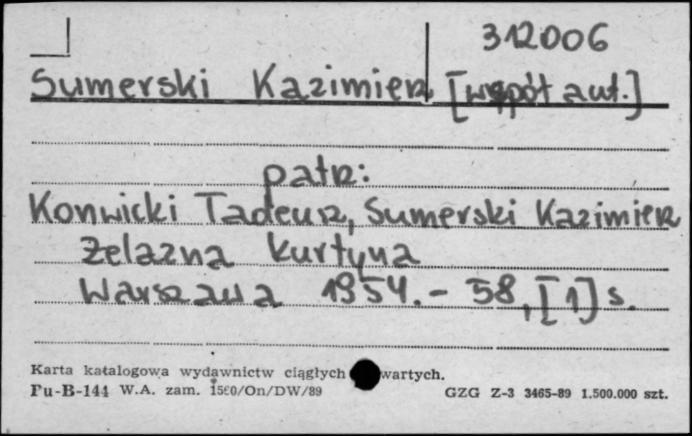 312006
Sumerski Kazimierz [współaut.]
patrz:
Konwicki Tadeusz, Sumerski Kazimierz
Żelazna kurtyna
Warszawa 1954. - 58, [1] s.
Karta katalogowa wydawnictw ciągłych wartych.
Pu-B-144 W.A. zam. 1560/On/DW/89 GZG Z-3 3465-89 1.500.000 szt.